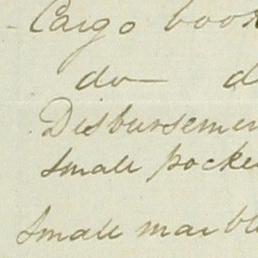 Cargo book
do d
Disbursemen
small pocke
small marbl